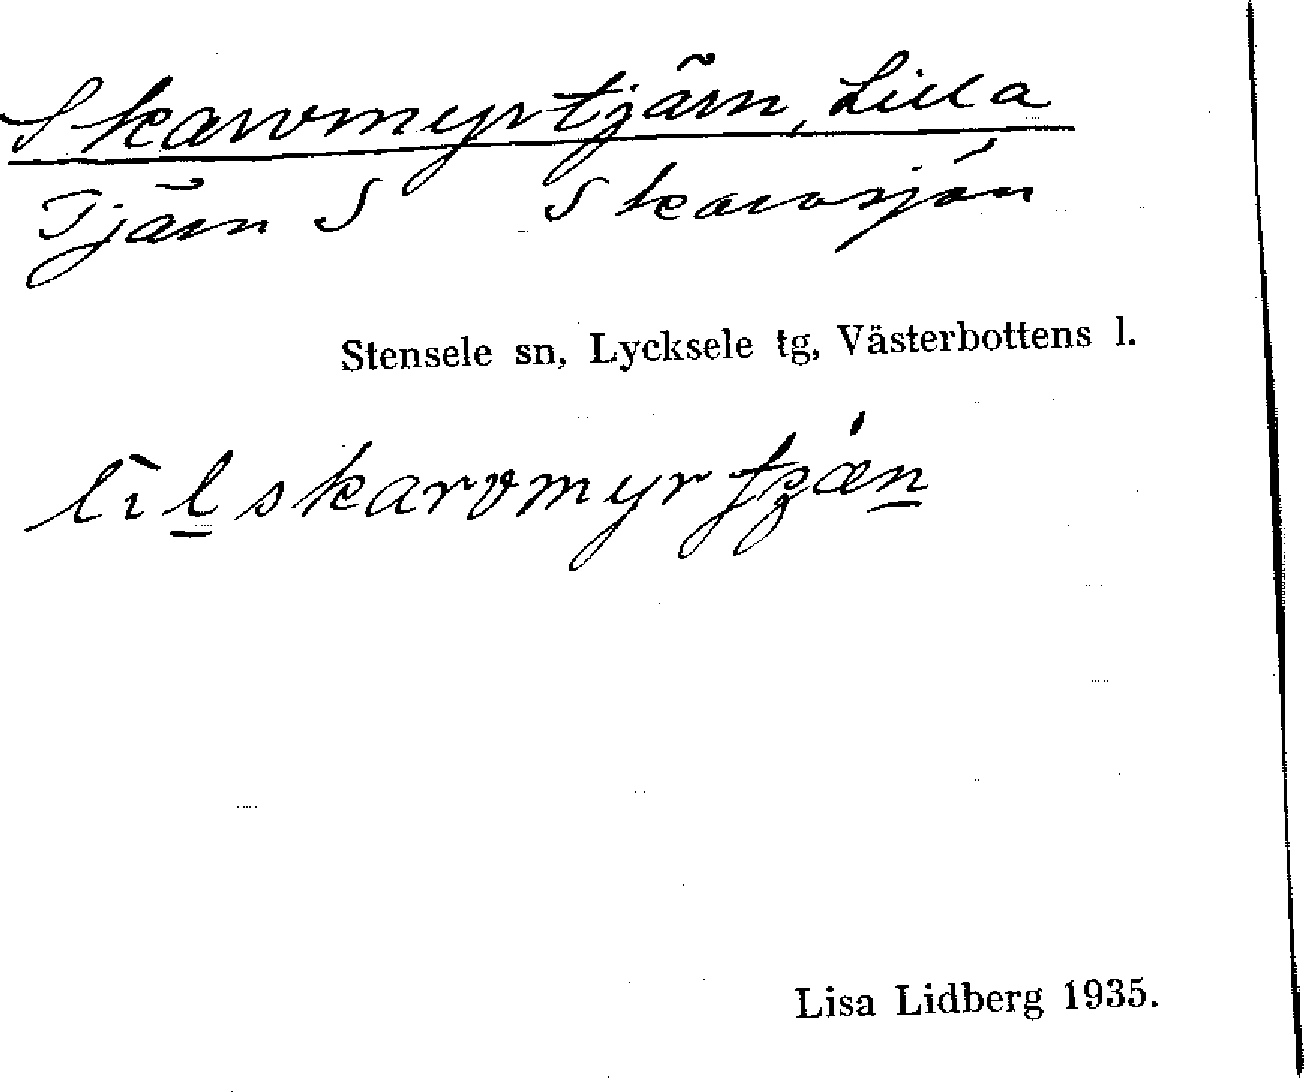 Skarvmyrtjärn, Lilla
Tjärn S Skarvsjön
Stensele sn, Lycksele tg, Västerbottens l.
lìlskarvmyrtʒæ̀n
Lisa Lidberg 1935.